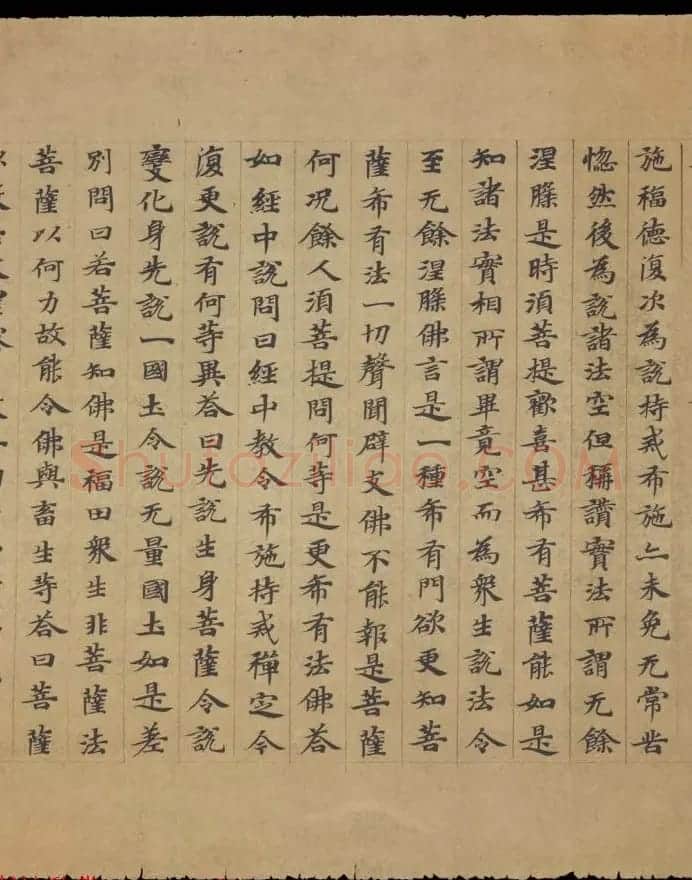 施福德復次為說持戒布施亦未免无常苦
惱然後為說諸法空但稱讚實法所謂无餘
涅槃是時須菩提歡喜甚希有菩薩能如是
知諸法實相所謂畢竟空而為衆生說法令
至无餘涅槃佛言是一種希有門欲更知菩
薩希有法一切聲聞辟支佛不能報是菩薩
何况餘人須菩提問何等是更希有法佛荅
如經中說問曰經中教令布施持戒禪定今
復更說有何等異荅曰先說生身菩薩今說
變化身先說一國土今說无量國土如是差
別問曰若菩薩知佛是福田衆生非菩薩法
菩薩以何力故能令佛與畜生等荅曰菩薩